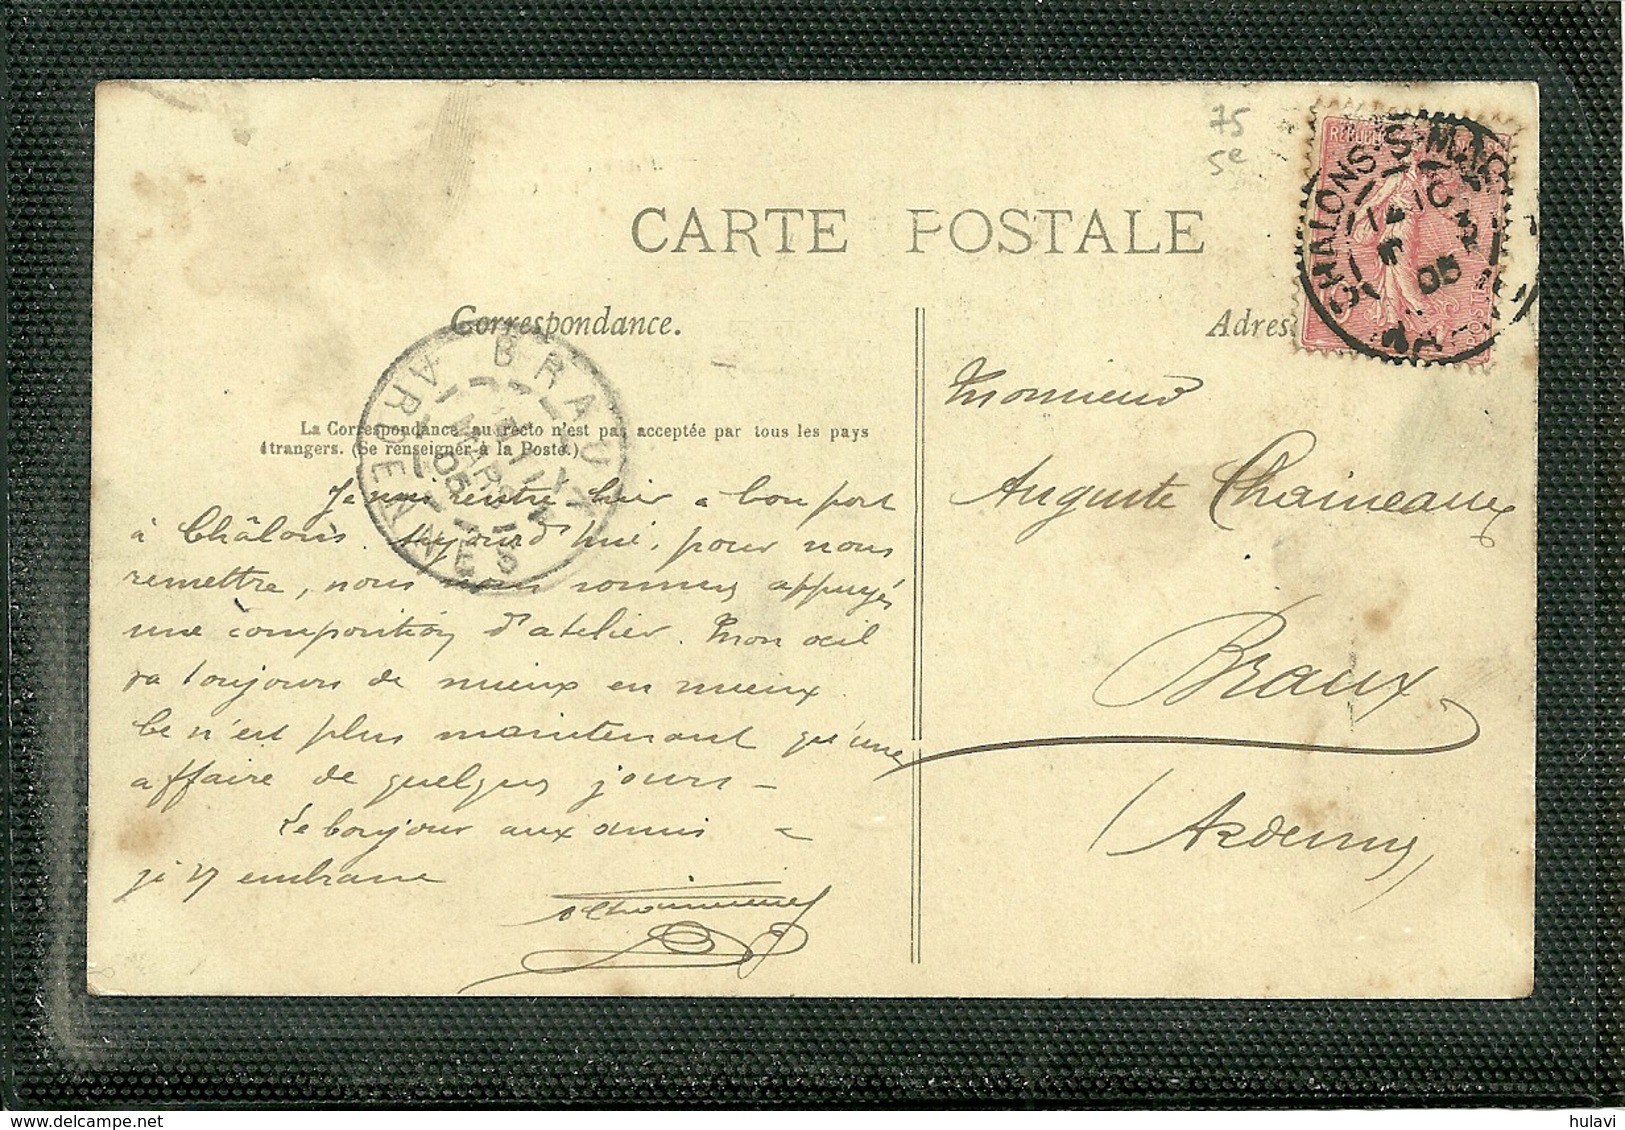 75
5e
CARTE POSTALE
Correspondance.
Adres
La Correspondance au recto n'est pas acceptée par tous les pays
étrangers. (Se renseigner à la Poste.)
CHALONS-S-MAR
05
BRAUX
ARDENNES
MARS
05
POSTES
Monsieur
Auguste Chaineaux
Braux
(Ardennes)
Je suis rentré hier à bon port
à Châlons. Aujourd'hui, pour nous
remettre, nous nous sommes appuyés
une composition d'atelier. Mon œil
va toujours de mieux en mieux
Ce n'est plus maintenant qu'une
affaire de quelques jours -
Le bonjour aux amis -
je v embrasse
hulavi